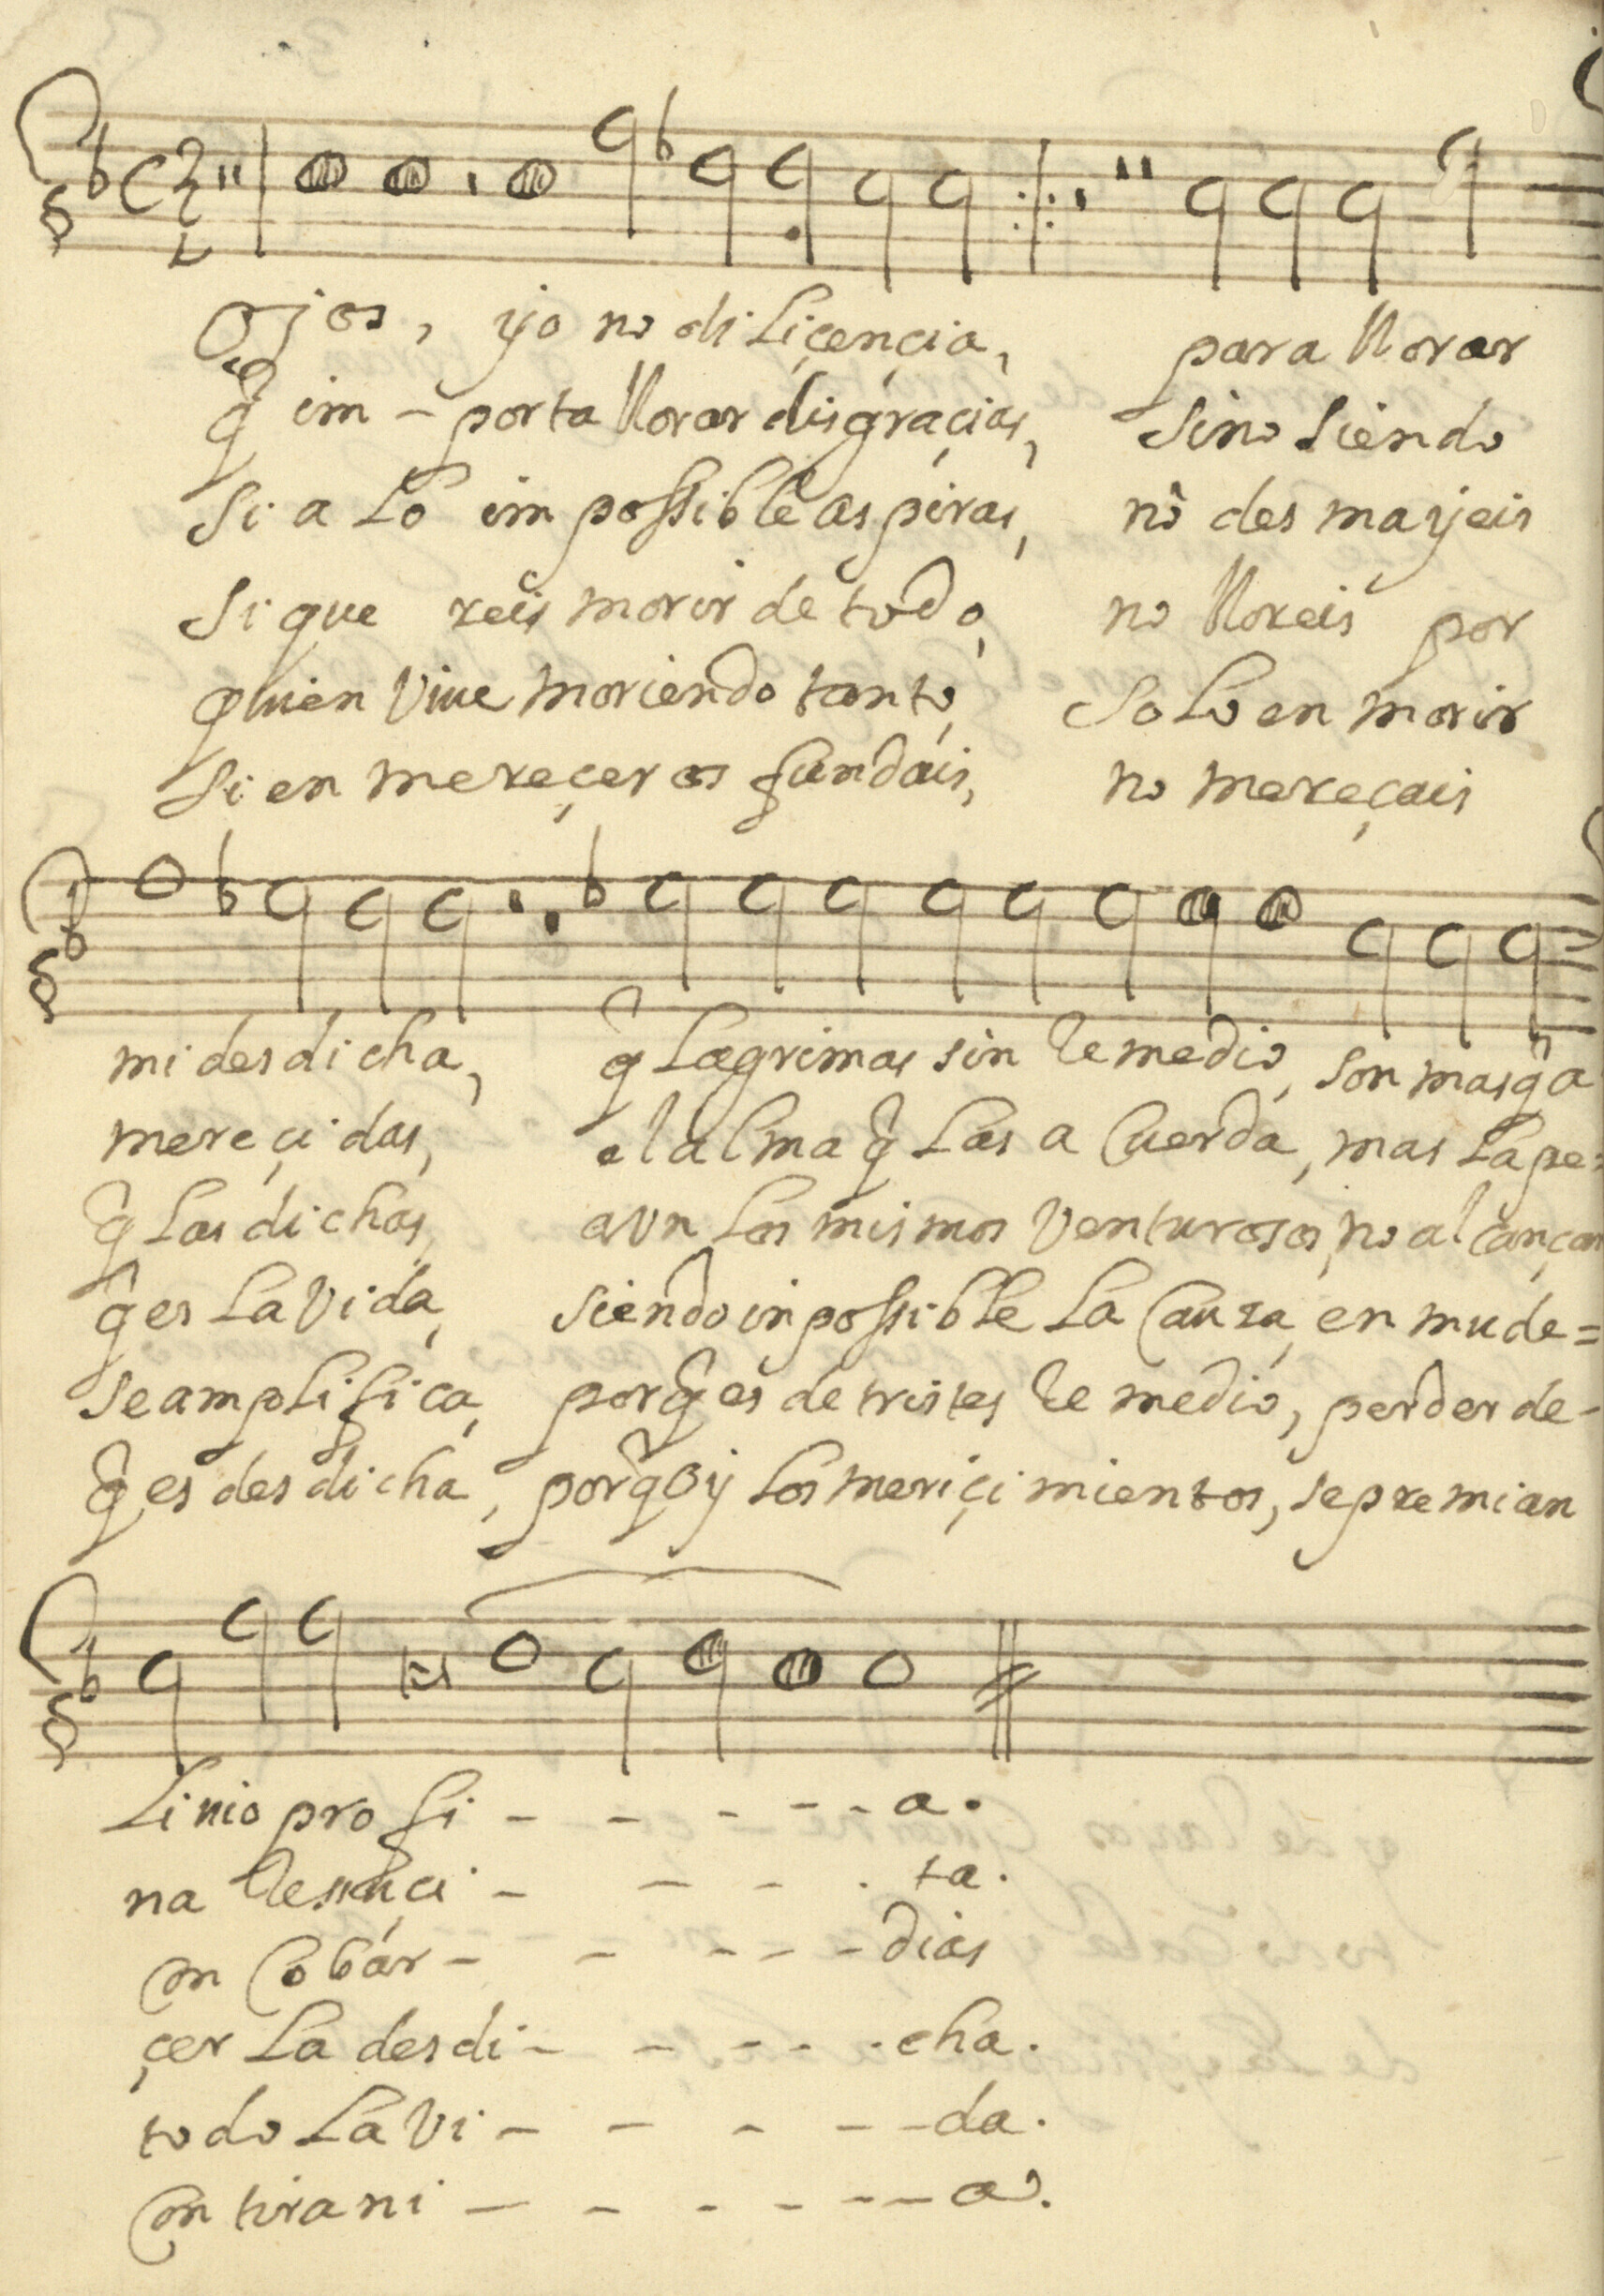 Ojos, yo no di Liçençia, para llorar
q̃ im - porta llorar disgraçias, Sino siendo
Si a Lo impossible aspiras, no des mayeis
Si que reis morir de todo, no lloreis por
quien Viue moriendo tanto, Solo en morir
Si en mereçer os fundais, no mereçais
mi des di cha, q̃ Lagrimas sin Remedio, son mas q̃ a
mere çi das, el alma q̃ Las a Cuerda, mas La pe=
q̃ Las dichas, avn Los mismos Venturosos, no alcançan
q̃ es La Vida, siendo inpossible La Cauza, en mude=
se amplifica, porq̃ es de tristes Re medio, perder de-
q̃ es des di cha, porq̃ oy Los meriçi mientos, se premian
Li uio pro fi - - - - - a.
na Resuçi - - - . ta.
Con Cobar - - - - - dias
çer La des di - - - - . cha.
to do La Vi - - - - - da.
Con tira ni - - - - - - a.